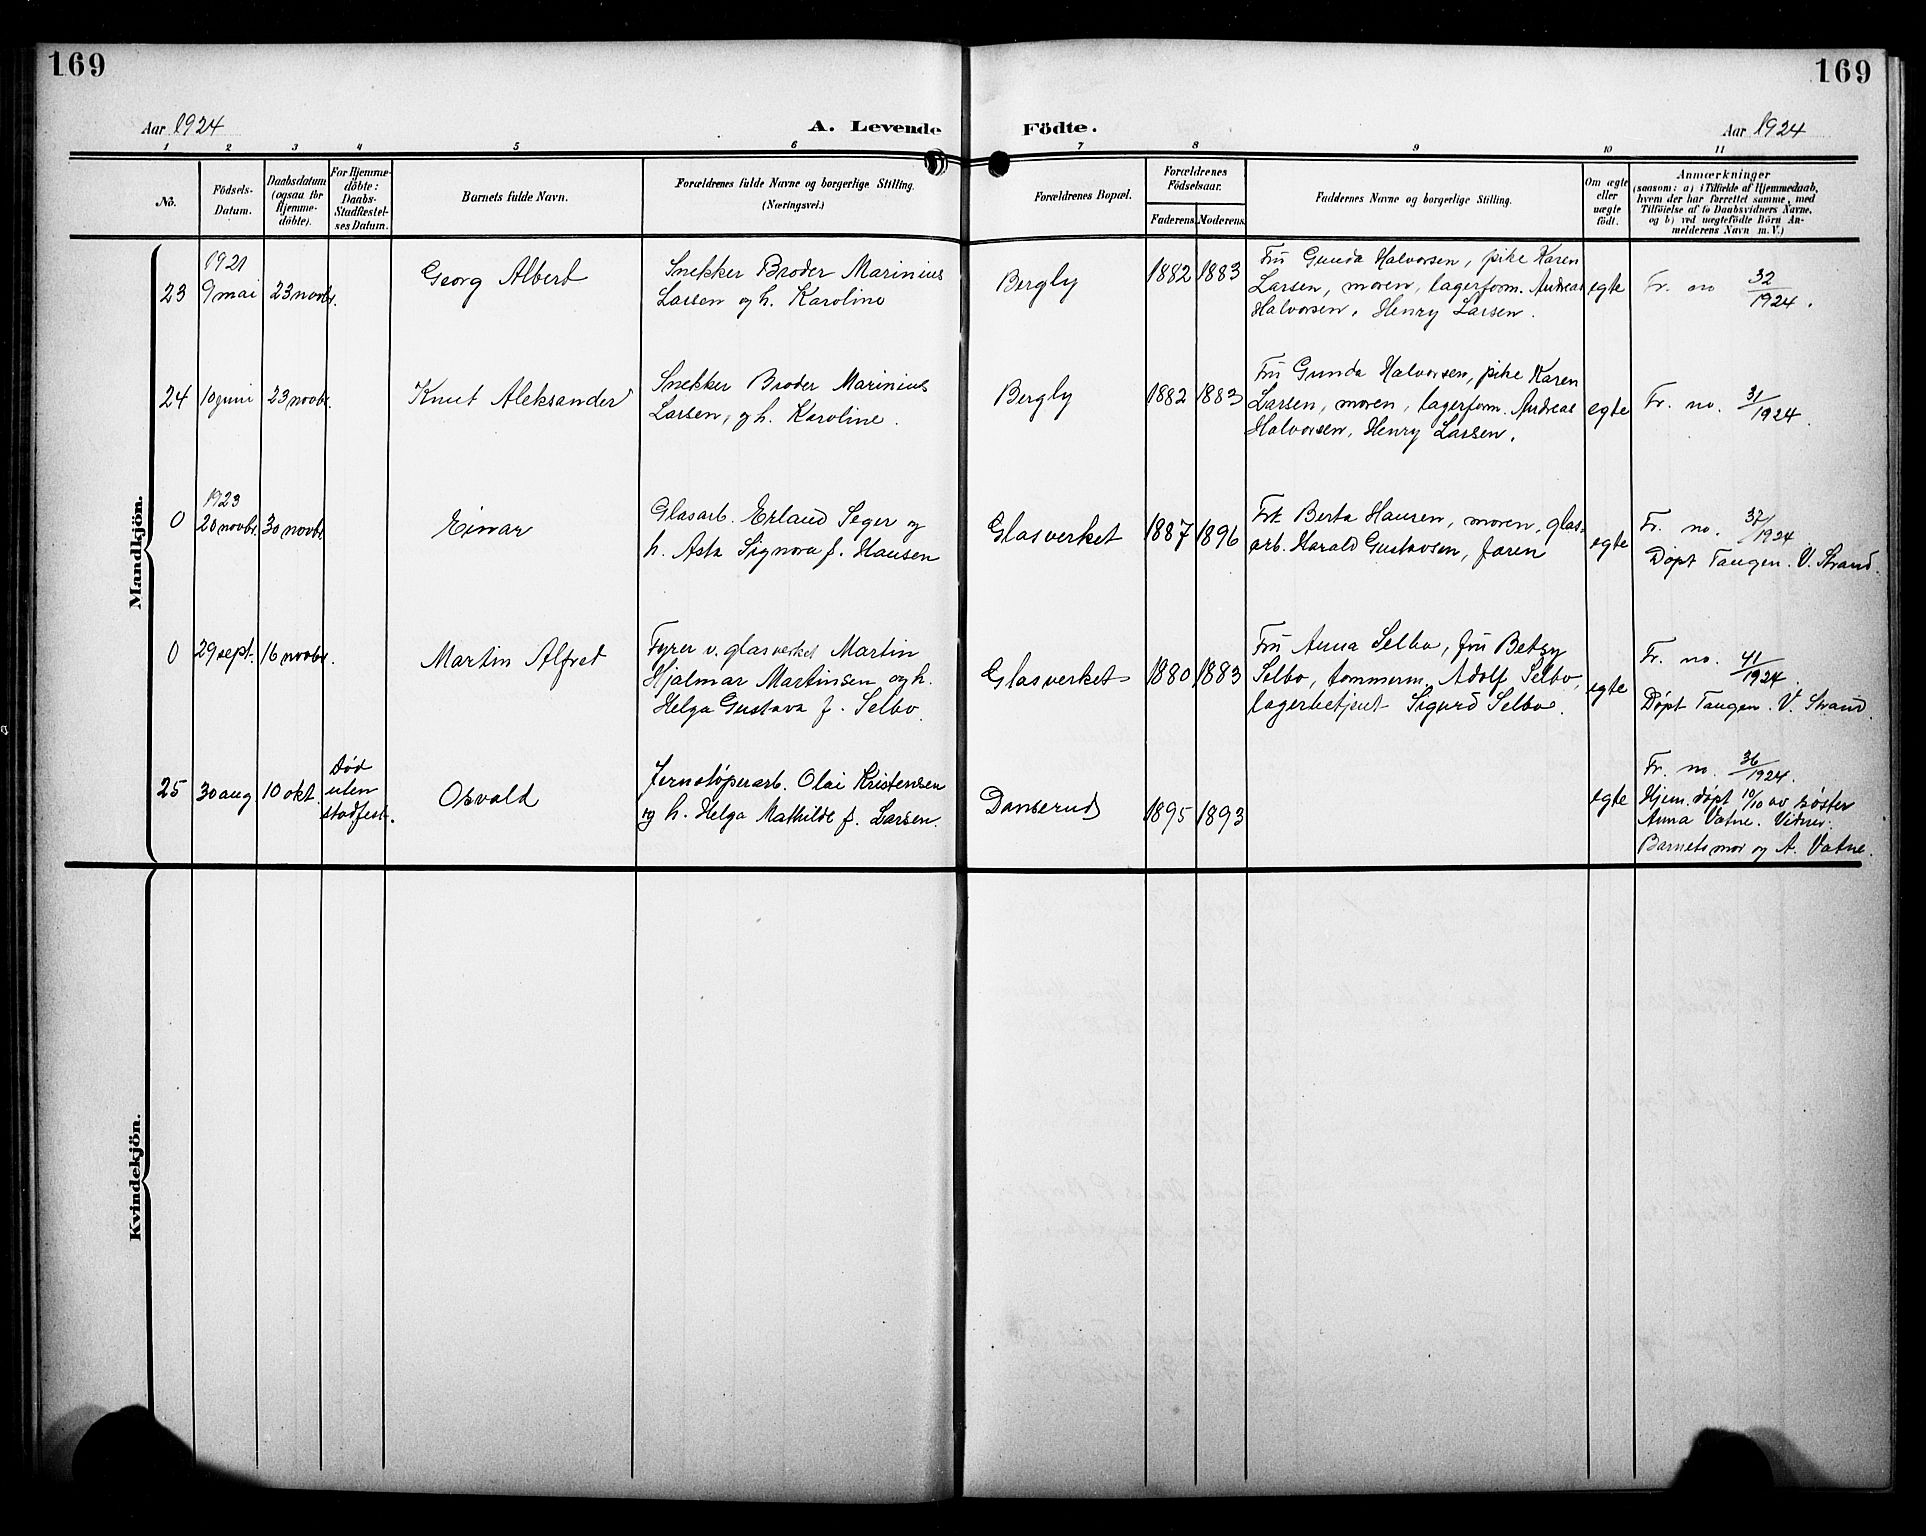 169
169
Aar 1924
A. Levende Födte.
Aar 1924
1 2 3 4 5 6 7 8 9 10 11
No.
Födsels-
Datum.
Daabsdatum
(ogsaa for
Hjemme-
döbte).
For Hjemme-
döbte:
Daabs-
Stadfæstel-
ses Datum.
Barnets fulde Navn.
Forældrenes fulde Navne og borgerlige Stilling.
(Næringsvei.)
Forældrenes Bopæl.
Forældrenes
Födselsaar.
Faderens. Moderens.
Faddernes Navne og borgerlige Stilling.
Om ægte
eller
uægte
födt.
Anmærkninger
(saasom: a) i Tilfælde af Hjemmedaab,
hvem der har forrettet samme, med
Tilföielse af to Daabsvidners Navne,
og b) ved uægtefödte Börn An-
melderens Navn m. V.)
Mandkjön.
23
1921
9 mai
23 novbr.
Georg Albert
Snekker Broder Marinius
Larsen og h. Karoline
Bergly
1882 1883
Fru Gunda Halvorsen, pike Karen
Larsen, moren, lagerform. Andreas
Halvorsen, Henry Larsen.
egte
Fr. no 32/1924.
24
10 juni
23 novbr.
Knut Aleksander
Snekker Broder Marinius
Larsen, og h. Karoline.
Bergly
1882 1883
Fru Gunda Halvorsen, pike Karen
Larsen, moren, lagerform. Andreas
Halvorsen, Henry Larsen.
egte
Fr. no. 31/1924.
0
1923
20 novbr.
30 novbr.
Einar
Glasarb. Erland Seger og
h. Asta Signora f. Hansen
Glasverket
1887 1896
Frk Berta Hansen, moren, glas-
arb. Harald Gustavsen, faren
egte
Fr. no. 37/1924
Døpt Tangen. V. Strand.
0
29 sept.
16 novbr.
Martin Alfred
Fyrer v. glasverket Martin
Hjalmar Martinsen og h.
Helga Gustava f. Selbo.
Glasverket
1880 1883
Fru Anna Selbo, fru Betzy
Selbo, tømmerm. Adolf Selbo,
lagerbetjent Sigurd Selbo.
egte
Fr. no. 41/1924.
Døpt Tangen. V. Strand.
25
30 aug
10 okt.
død
uten
stadfest.
Osvald
Jernstøperarb. Olai Kristensen
og h. Helga Mathilde f. Larsen.
Danserud
1895 1893
egte
Fr. no. 36/1924.
Hjem. døpt 10/10 av søster
Anna Vatne. Vidner:
Barnets mor og A. Vatne.
Kvindekjön.